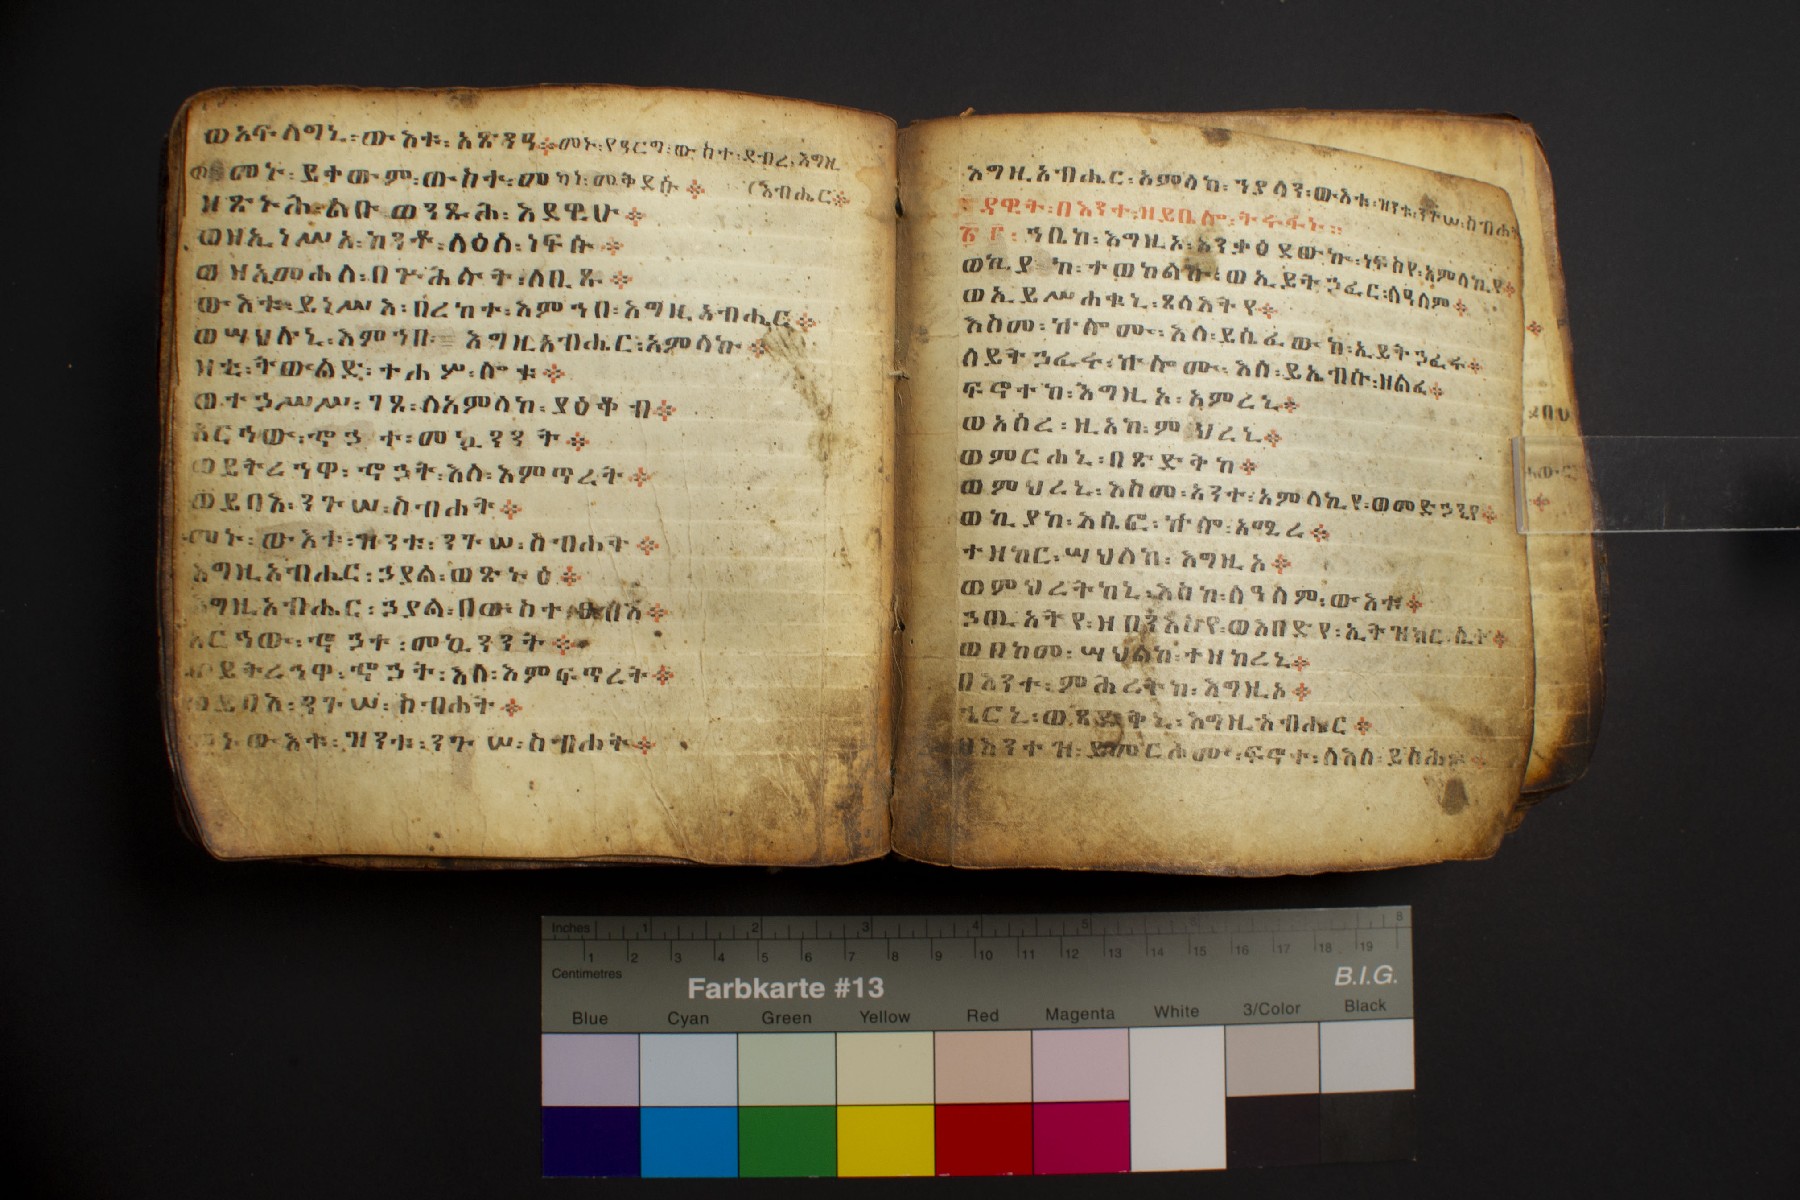 ወአፍለግኒ፡ውእቱ፡አጽንዓ፨መኑ፡የዓርግ፡ውስተ፡ደብረ፡እግዚ
መኑ፡ይቀውም፡ውስተ፡መካነ፡መቅደሱ፨ (አብሔር፨
ዘጽኑሕ፡ልቡ፡ወንጹሕ፡እደዊሁ፨
ወዘኢነሥአ፡ከንቶ፡ለዕለ፡ነፍሱ፨
ወዘኢመሐለ፡በጕሕሉት፡ለቢጹ፨
ውእቱ፡ይነሥእ፡በረከተ፡እምኀበ፡እግዚአብሔር፨
ወሣህሉኒ፡እምኀበ፡እግዚአብሔር፡አምላኩ፨
ዛቲ፡ትውልድ፡ተሐሦሦቱ፨
ወተኃሥሥ፡ገጸ፡ለአምላከ፡ያዕቆብ፨
አርኅው፡ኆኃተ፡መኳንንት፨
ወይትረኀዋ፡ኆኃት፡እለ፡እምጥረት፨
ወይባእ፡ንጉሠ፡ስብሐት፨
መኑ፡ውእቱ፡ዝንቱ፡ንጉሠ፡ስብሐት፨
እግዚአብሔር፡ኃያል፡ወጽኑዕ፨
እግዚአብሔር፡ኃያል፡በውስተ፡ፀብእ፨
አርኅው፡ኆኃተ፡መኳንንት፨
ወይትረኀዋ፡ኆኃት፡እለ፡እምፍጥረት፨
ወይባእ፡ንጉሠ፡ስብሐት፨
መኑ፡ውእቱ፡ዝንቱ፡ንጉሠ፡ስብሐት፨
እግዚአብሔር፡አምላከ፡ኀያላን፡ውእቱ፡ዝንቱ፡ንጉሠ፡ስብሐት
ዳዊት፡በእንተ፡ዘይቤሎ፡ትሩፋኑ።
ኀቤከ፡እግዚኦ፡አንቃዕደውኩ፡ነፍስየ፡አምላኪየ፨
ወኪያከ፡ተወከልኩ፡ወኢይትኃፈር፡ለዓለም፨
ወኢይሥሐቁኒ፡ጸላእትየ፨
እስመ፡ኵሎሙ፡እለ፡ይሴፈውከ፡ኢይትኃፈሩ፨
ለይትኃፈሩ፡ኵሎሙ፡እለ፡ይኤብሱ፡ዘልፈ፨
ፍኖተከ፡እግዚኦ፡አምረኒ፨
ወአሰረ፡ዚአከ፡ምህረኒ፨
ወምርሐኒ፡በጽድቅከ፨
ወምህረኒ፡እስመ፡አንተ፡አምላኪየ፡ወመድኃኒየ፨
ወኪያከ፡እሴፎ፡ኵሎ፡አሚረ፨
ተዘከር፡ሣህለከ፡እግዚኦ፨
ወምህረትከኒ፡እስከ፡ለዓለም፡ውእቱ፨
ኃጢአትየ፡ዘበንእስየ፡ወእበድየ፡ኢትዝክር፡ሊተ፨
ወበከመ፡ሣህልከ፡ተዘከረኒ፨
በእንተ፡ምሕረትከ፡እግዚኦ፨
ኄርኒ፡ወጻድቅኒ፡እግዚአብሔር፨
በእንተዝ፡ይመርሖሙ፡ፍኖተ፡ለእለ፡ይስሕቱ፨
Inches 1 2 3 4 5 6 8
1 2 3 4 5 6 7 8 9 10 11 12 13 14 15 16 17 18 19
Centimetres
Farbkarte #13 B.I.G.
Blue Cyan Green Yellow Red Magenta White 3/Color Black